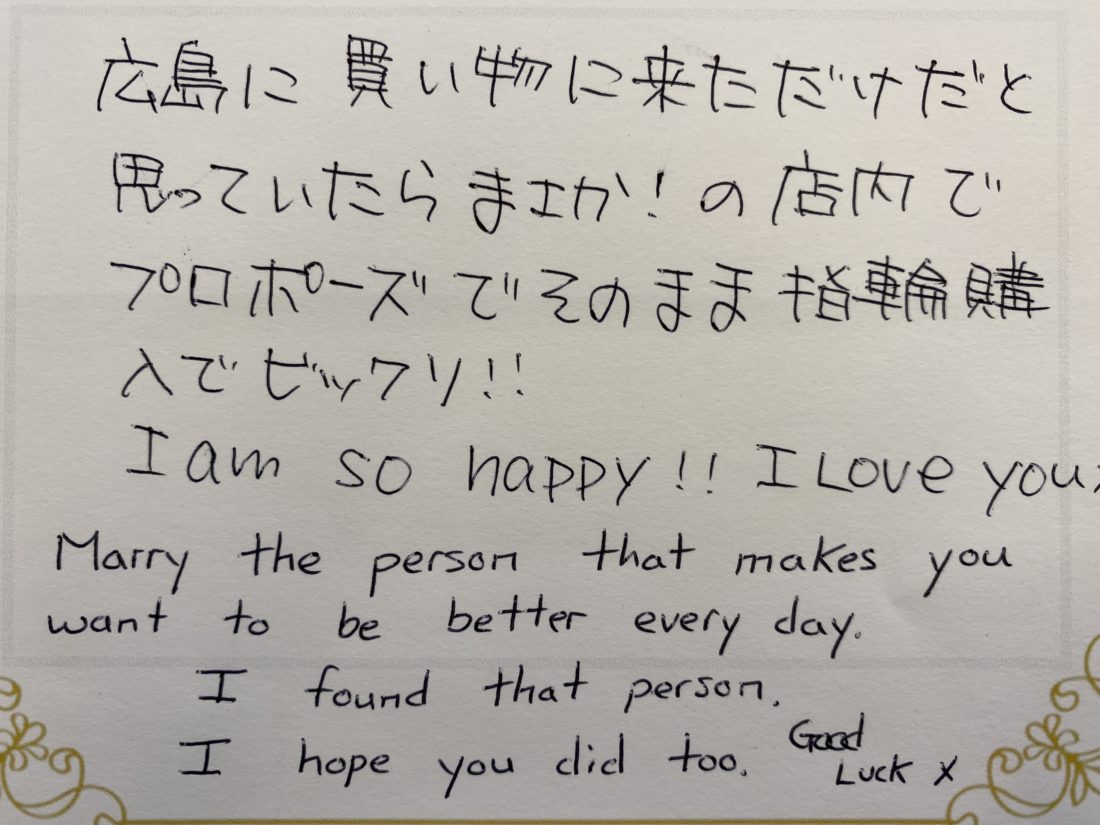 広島に買い物に来ただけだと
思っていたらまエか!の店内で
プロポーズでそのまま指輪購
入でビックリ!!
I am so happy!! I Love you
Marry the person that makes you
want to be better every day.
I found that person.
I hope you did too. Good
Luck x